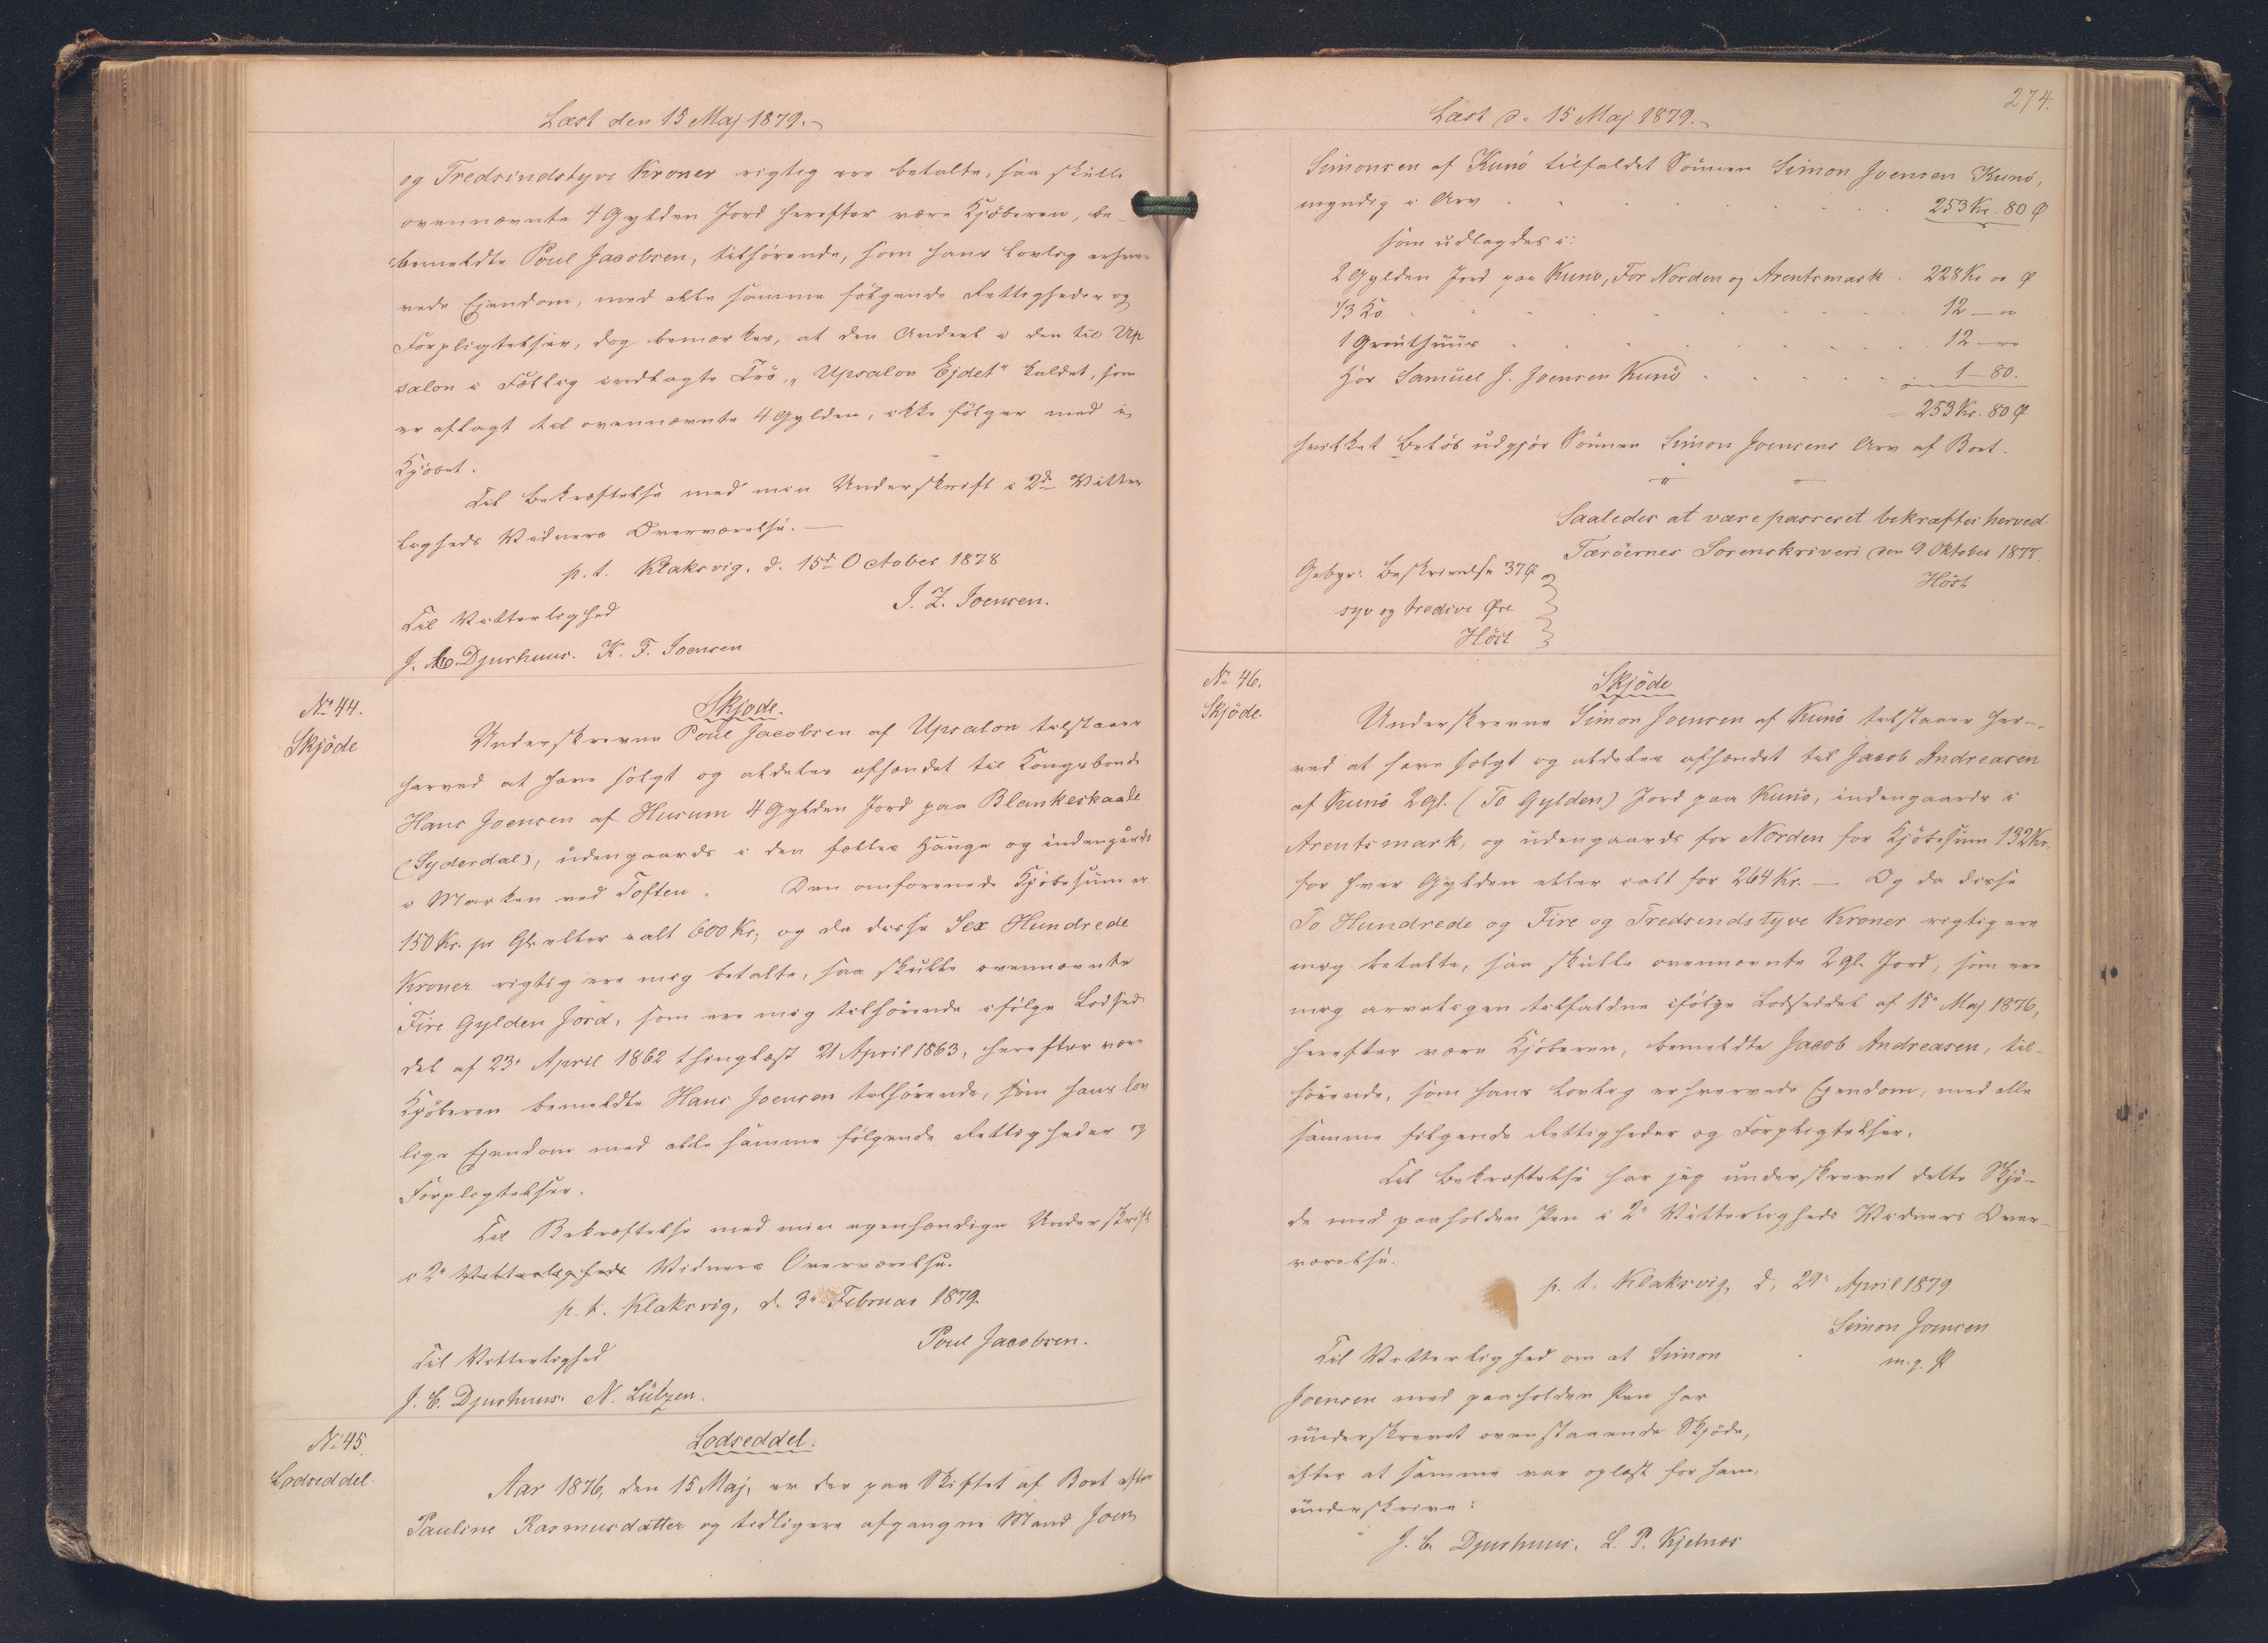 Læst den 15 Maj 1879.
og Tredsindstyve Kroner rigtig ere betalte, saa skulle
ovennævnte 4 Gylden Jord herefter være Kjöberen, be-
bemeldte Poul Jacobsen, tilhörende, som hans lovlig erhver
vede Ejendom, med alle samme fölgende Rettigheder og
Forpligtelser, dog bemærkes, at den Andeel i den til Up
salon i Fællig indtagte Trö, "Upsalon Ejdet" kaldet, som
er aflagt til ovennævnte 4 Gylden, ikke fölger med i
Kjöbet.
Til Bekræftelse med min Underskrift i 2de Vitter
ligheds Vidners Overværelse.—
p. t. Klaksvig, d. 15d October 1878
J. Z. Joensen.
Til Vitterlighed
J. C. Djurhuus. K. F. Joensen
No 44.
Skjöde
Skjode.
Underskrevne Poul Jacobsen af Upsalon tilstaaer
herved at have solgt og aldeles afhændet til Kongsbonde
Hans Joensen af Husum 4 Gylden Jord paa Blankeskaale
(Syderdal), udengaards i den fælles Hauge og indengaards
i Marken ved Toften. Den omforenede Kjöbesum er
150 Kr. pr Gl. eller ialt 600 Kr; og da disse Sex Hundrede
Kroner rigtig ere mig betalte, saa skulle ovennævnte
Fire Gylden Jord, som ere mig tilhörende ifölge Lodsed
del af 23. April 1862 thinglæst 21 April 1863, herefter være
Kjöberen bemeldte Hans Joensen tilhörende, som hans lov
lige Ejendom med alle samme fölgende Rettigheder og
Forpligtelser.
Til Bekræftelse med min egenhændige Underskrift
i 2de Vitterligheds Vidners Overværelse.
p. t. Klaksvig, d. 3d Februar 1879.
Poul Jacobsen.
Til Vitterlighed
J. C. Djurhuus. N. Lützen.
No 45.
Lodseddel
Lodseddel.
Aar 1876, den 15 Maj, er der paa Skiftet af Boet efter
Pauline Rasmusdatter og tidligere afgangne Mand Joen
274.
Læst d. 15 Maj 1879.
Simonsen af Kunö tilfaldet Sönnen Simon Joensen Kunö,
myndig i Arv 253 Kr. 80 Ø
som udlagdes i:
2 Gylden Jord paa Kunö, For Norden og Arentsmark 228 Kr. 00 Ø
1/3 Ko 12 — 00
1 Grouthuus 12 — 00
Hos Samuel J. Joensen Kunö 1 — 80.
253 Kr. 80 Ø
hvilket Belöb udgjör Sönnen Simon Joensens Arv af Boet.
Saaledes at være passeret bekræftes herved
Færöernes Sorenskriveri den 9 Oktober 1877.
Höst
Gebyr: Beskrivelse 37 Ø
syv og tredive Øre
Höst
No 46.
Skjöde.
Skjöde
Underskrevne Simon Joensen af Kunö tilstaaer her-
ved at have solgt og aldeles afhændet til Jacob Andreasen
af Kunö 2 gl. (To Gylden) Jord paa Kunö, indengaards i
Arentsmark, og udengaards for Norden for Kjöbesum 132 Kr.
for hver Gylden eller ialt for 264 Kr. — Og da disse
To Hundrede og Fire og Tredsindstyve Kroner rigtig ere
mig betalte, saa skulle ovennævnte 2 gl. Jord, som ere
mig arveligen tilfaldne ifölge Lodseddel af 15de Maj 1876,
herefter være Kjöberen, bemeldte Jacob Andreasen, til-
hörende, som hans lovlig erhvervede Ejendom, med alle
samme fölgende Rettigheder og Forpligtelser.
Til Bekræftelse har jeg underskrevet dette Skjö-
de med paaholden Pen i 2de Vitterligheds Vidners Over-
værelse.
p. t. Klaksvig, d. 29de April 1879
Simon Joensen
m. p. P
Til Vitterlighed om at Simon
Joensen med paaholden Pen har
underskrevet ovenstaaende Skjöde,
efter at samme var oplæst for ham,
underskrive:
J. C. Djurhuus. L. P. Kjelnæs